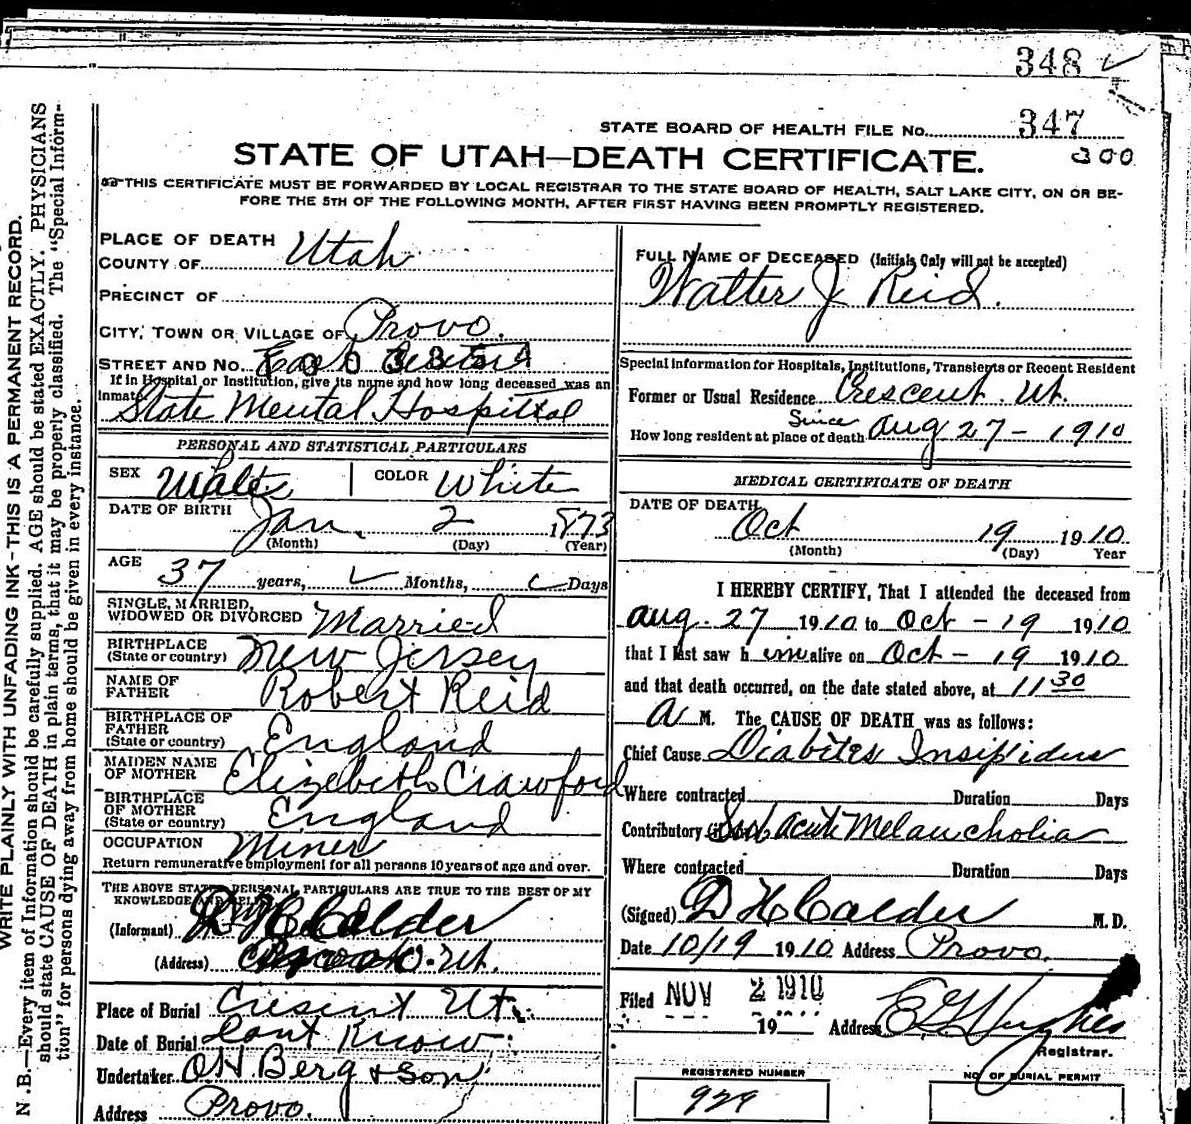 348
STATE BOARD OF HEALTH FILE No. 347
STATE OF UTAH—DEATH CERTIFICATE.
300
THIS CERTIFICATE MUST BE FORWARDED BY LOCAL REGISTRAR TO THE STATE BOARD OF HEALTH, SALT LAKE CITY, ON OR BE-
FORE THE 5TH OF THE FOLLOWING MONTH, AFTER FIRST HAVING BEEN PROMPTLY REGISTERED.
WRITE PLAINLY WITH UNFADING INK—THIS IS A PERMANENT RECORD.
N. B.—Every item of Information should be carefully supplied. AGE should be stated EXACTLY. PHYSICIANS
should state CAUSE OF DEATH in plain terms, that it may be properly classified. The "Special Inform-
tion" for persons dying away from home should be given in every instance.
PLACE OF DEATH
COUNTY OF Utah
PRECINCT OF
CITY, TOWN OR VILLAGE OF Provo.
STREET AND No. East
If in Hospital or Institution, give its name and how long deceased was an
inmate State Mental Hospital
PERSONAL AND STATISTICAL PARTICULARS
SEX Male COLOR White
DATE OF BIRTH Jan. 2 1873
(Month) (Day) (Year)
AGE 37 years, Months, Days
SINGLE, MARRIED,
WIDOWED OR DIVORCED Married
BIRTHPLACE
(State or country) New Jersey
NAME OF
FATHER Robert Reid
BIRTHPLACE OF
FATHER
(State or country) England
MAIDEN NAME
OF MOTHER Elizebeth Crawford
BIRTHPLACE
OF MOTHER
(State or country) England
OCCUPATION Miner
Return remunerative employment for all persons 10 years of age and over.
THE ABOVE STATED PERSONAL PARTICULARS ARE TRUE TO THE BEST OF MY
KNOWLEDGE AND BELIEF
(Informant) D H Calder
(Address) Provo Ut.
Place of Burial Cresent Ut.
Date of Burial Dont Know
Undertaker O H. Berg & Son
Address Provo.
FULL NAME OF DECEASED (Initials Only will not be accepted)
Walter J Reid.
Special information for Hospitals, Institutions, Transients or Recent Resident
Former or Usual Residence Crescent. Ut.
How long resident at place of death Since Aug 27 - 1910
MEDICAL CERTIFICATE OF DEATH
DATE OF DEATH Oct 19 1910
(Month) (Day) Year
I HEREBY CERTIFY, That I attended the deceased from
Aug. 27 1910 to Oct - 19 1910
that I last saw him alive on Oct - 19 1910
and that death occurred, on the date stated above, at 11 30
A M. The CAUSE OF DEATH was as follows:
Chief Cause Diabites Insipidus
Where contracted Duration Days
Contributory Acute Melancholia
Where contracted Duration Days
(Signed) D H Calder M. D.
Date 10/19 1910 Address Provo.
Filed NOV 2 1910
19 Address E G Hughes
Registrar.
REGISTERED NUMBER
929
NO. OF BURIAL PERMIT